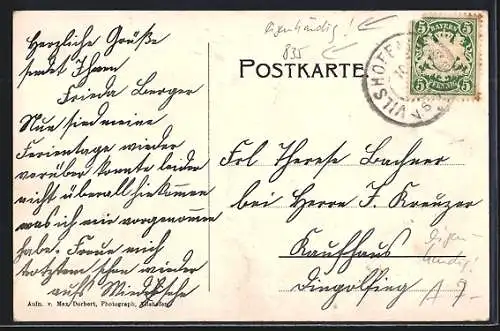 Herzliche Grüße
sendet Ihnen
Frieda Berger
Nun sind meine
Ferientage wieder
vorüber konnte leider
nicht überall hinkommen
was ich mir vorgenommen
habe. Freue mich
trotzdem schon wieder
aufs Wiedersehn
Aufn. v. Max Dorbert, Photograph, Vilshofen.
eigenhändig!
835
POSTKARTE
VILSHOFEN
BAYERN
5 5
5 5
PFENNIG
Frl Therese Bachner
bei Herrn J. Kreuzer
Kaufhaus
Dingolfing
Eigen-
händig!
A 7.-